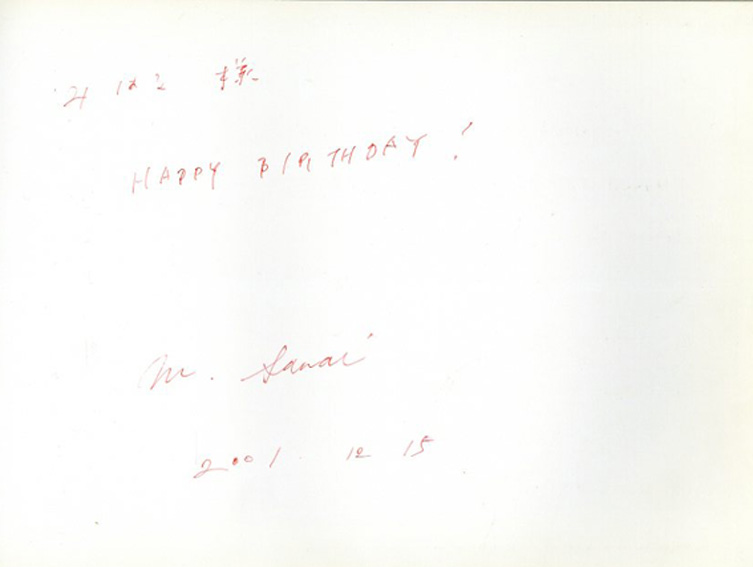 みほと 様
HAPPY BIRTHDAY!
M. Sawai
2001. 12 15